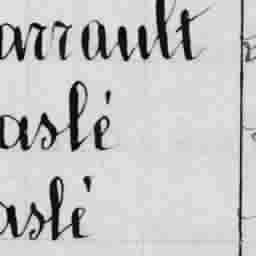 arrault
aslé
aslé